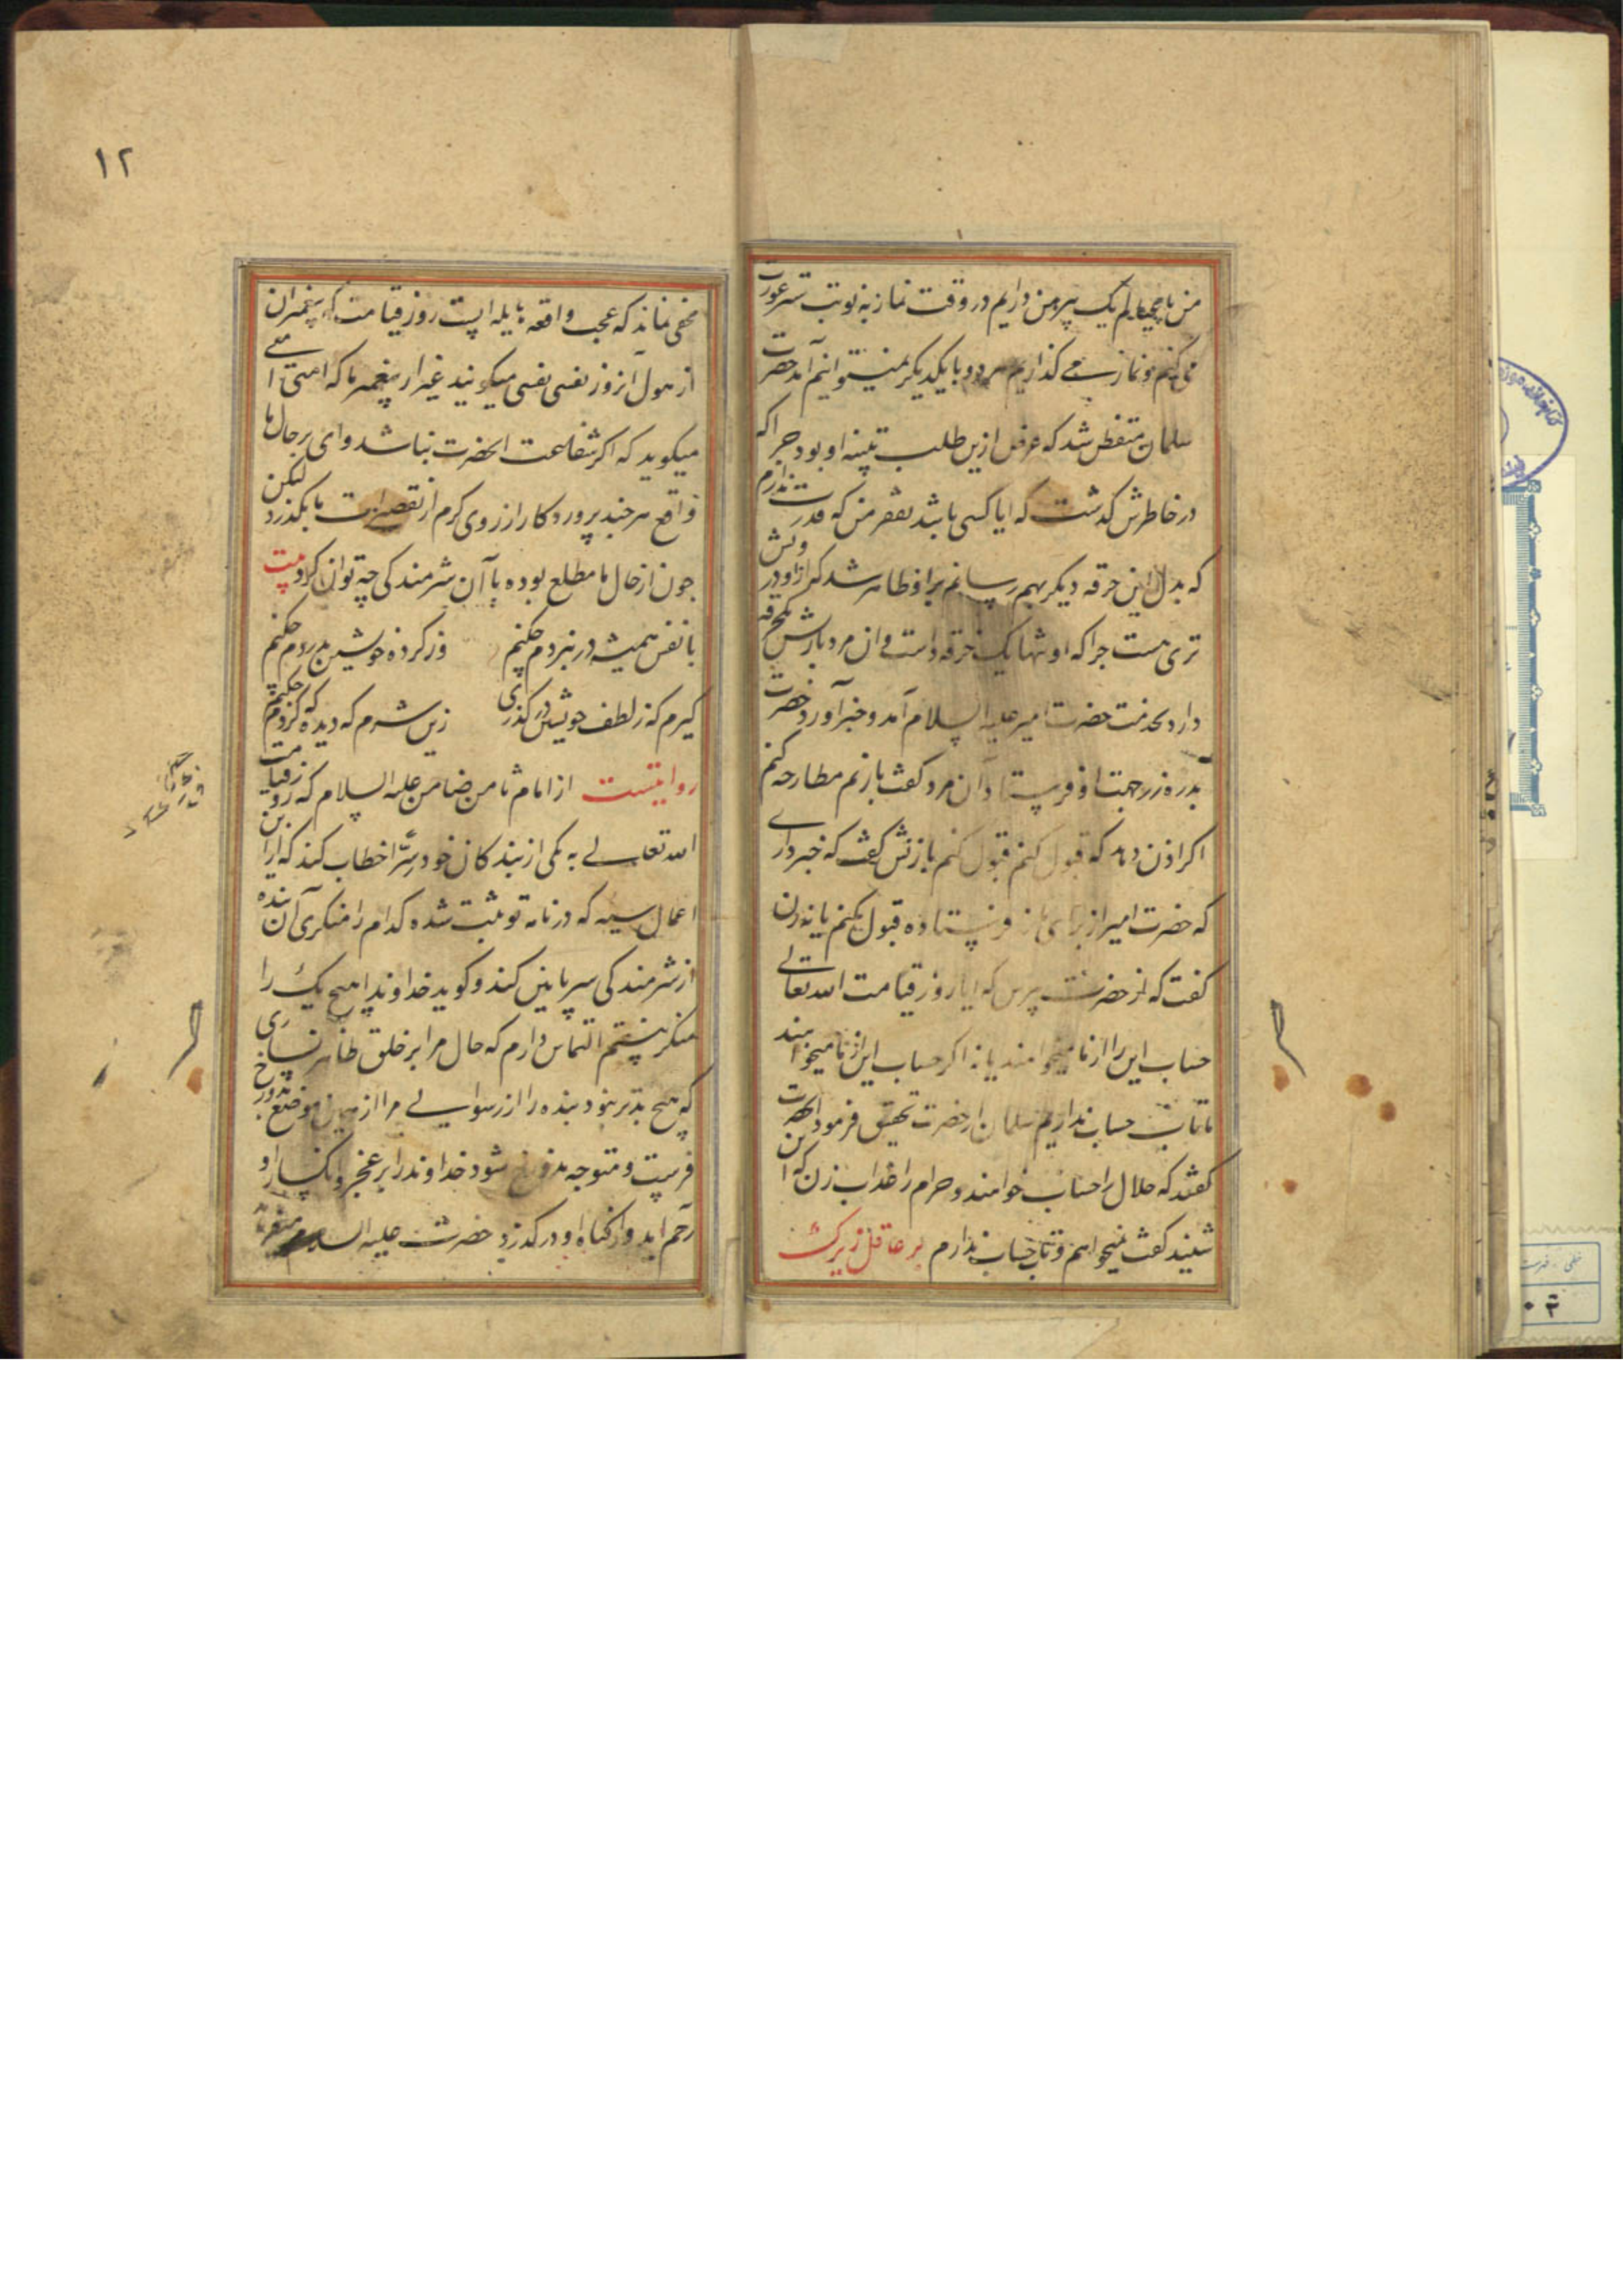 من با عیالم یک پیرهن داریم در وقت نماز به نوبت ستر عورت
می کنیم و نماز می گذاریم هر دو با یکدیگر نمیتوانیم آمد حضرت
سلمان متفطن شد که غرض ازین طلب تنبیه او بود چرا که
در خاطرش گذشت که ایا کسی باشد بفقر من که قدرت ندارم
که بدل این خرقه دیگر بهم رسانم براو ظاهر شد که ازو درویش
تری هست چرا که او تنها یک خرقه داشت و ان مرد بازنش یکخرقه
دارد بخدمت حضرت امیر علیه السلام آمد و خبر آورد حضرت
بدره زر جهت او فرستاد آن مرد گفت بازنم مطارحه کنم
اگر اذن دهد که قبول کنم قبول کنم بازنش گفت که خبر داری
که حضرت امیر از برای ما زر فرستاده قبول بکنم یا نه زن
گفت که از حضرت بپرس که ایا روز قیامت الله تعالی
حساب این را از ما میخواهند یا نه اگر حساب این از ما میخواهند
ما تاب حساب نداریم سلمان از حضرت تحقیق فرمود انحضرت
گفتند که حلال را حساب خواهند و حرام را عذاب زن که این
شنید گفت نمیخواهم و تاب حساب ندارم بر عاقل زیرک
۱۲
مخفی نماند که عجب واقعه هایله ایست روز قیامت که پیغمبران
از هول آنروز نفسی نفسی میگویند غیر از پیغمبر ما که امتی امتی
میگوید که اگر شفاعت انحضرت نباشد وای بر حال ما
واقع هر چند پروردگار از روی کرم از تقصیرات ما بگذرد لیکن
چون از حال ما مطلع بوده با آن شرمندگی چه توان کرد بیت
با نفس همیشه در نبردم چکنم وز کرده خویشتن بدردم چکنم
گیرم که ز لطف خویش در گذری زین شرم که دیده که کردم چکنم
روایتست از امام ثامن ضامن علیه السلام که روز قیامت
الله تعالی به یکی از بندگان خود سرا خطاب کند که ازین
اعمال سیه که در نامه تو ثبت شده کدام را منکری آن بنده
از شرمندگی سر پایین کند و گوید خداوندا هیچ یک را
منکر نیستم التماس دارم که حال مرا بر خلق ظاهر نسازی
که هیچ بدتر نبود بنده را از رسوایی مرا از همین موضع بدوزخ
فرست و متوجه دوزخ شود خداوند را بر عجز و انکسار او
رحم اید و از گناه او درگذرد حضرت علیه السلام میفرماید